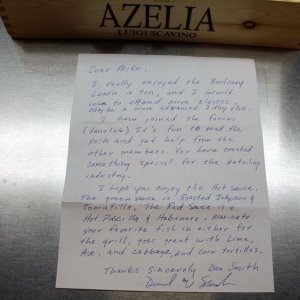 AZELIA
LUIGI SCAVINO
Dear Mike,
I really enjoyed the Bootcamp
Learn a ton, and I would
love to attend more classes.
Maybe a more advanced 3 day class.
I have joined the forum
It's fun to read the
posts and get help from the
other members. You have created
something special for the detailing
industry.
I hope you enjoy the Hot Sauce.
The green sauce is Roasted Jalapeno &
Tomatillo, The Red Sauce is a
Hot Pasilla & Habanero. Marinate
your favorite fish in either for
the grill, goes great with Lime,
Avo, and cabbage, and corn tortillas.
Thanks Sincerely Dan Smith